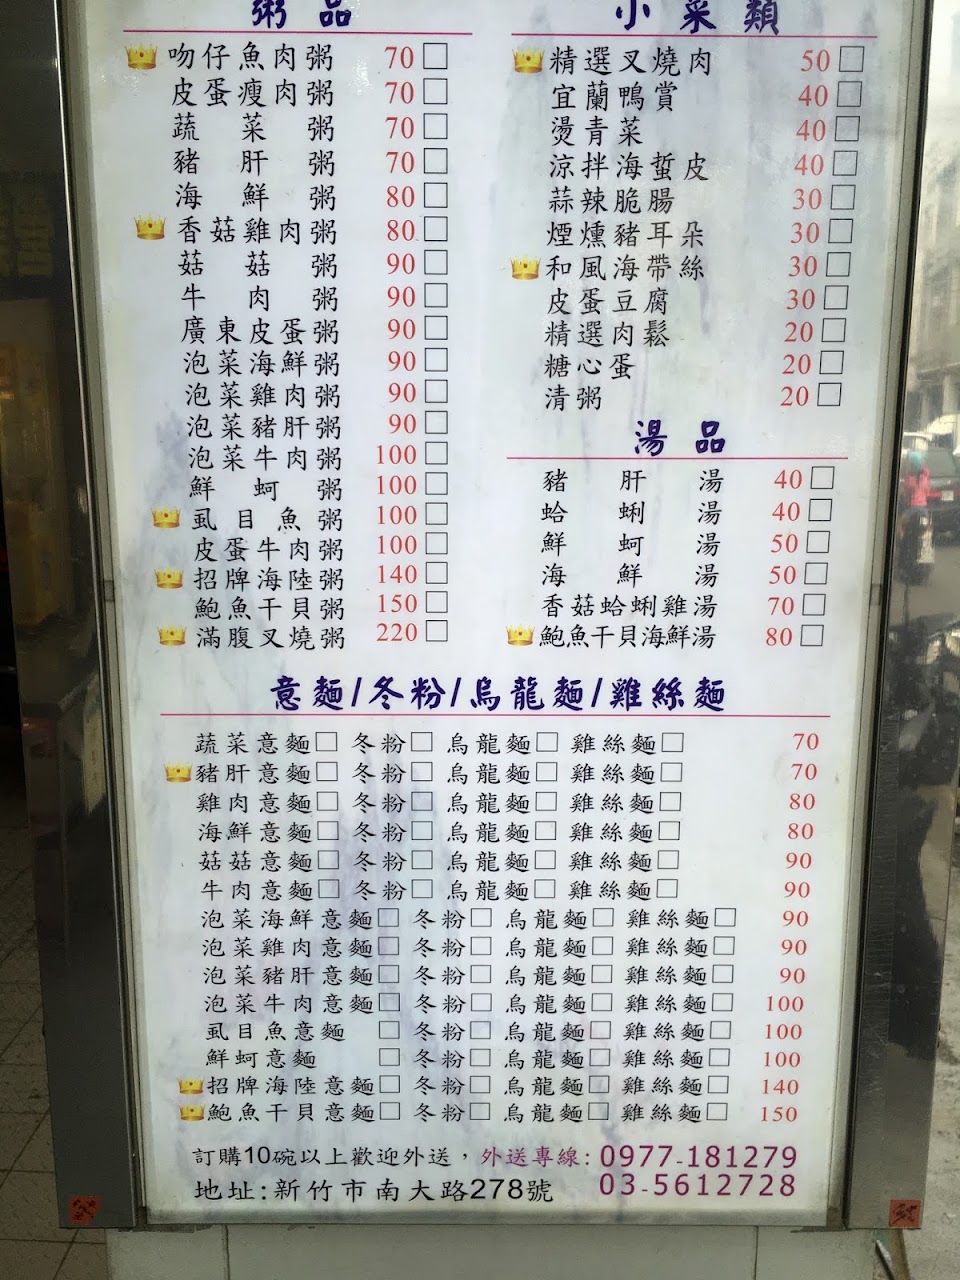 粥品
吻仔魚肉粥 70□
皮蛋瘦肉粥 70□
蔬菜粥 70□
豬肝粥 70□
海鮮粥 80□
香菇雞肉粥 80□
菇菇粥 90□
牛肉粥 90□
廣東皮蛋粥 90□
泡菜海鮮粥 90□
泡菜雞肉粥 90□
泡菜豬肝粥 90□
泡菜牛肉粥 100□
鮮蚵粥 100□
虱目魚粥 100□
皮蛋牛肉粥 100□
招牌海陸粥 140□
鮑魚干貝粥 150□
滿腹叉燒粥 220□
小菜類
精選叉燒肉 50□
宜蘭鴨賞 40□
燙青菜 40□
涼拌海蜇皮 40□
蒜辣脆腸 30□
煙燻豬耳朵 30□
和風海帶絲 30□
皮蛋豆腐 30□
精選肉鬆 20□
糖心蛋 20□
清粥 20□
湯品
豬肝湯 40□
蛤蜊湯 40□
鮮蚵湯 50□
海鮮湯 50□
香菇蛤蜊雞湯 70□
鮑魚干貝海鮮湯 80□
意麵/冬粉/烏龍麵/雞絲麵
蔬菜意麵□ 冬粉□ 烏龍麵□ 雞絲麵□ 70
豬肝意麵□ 冬粉□ 烏龍麵□ 雞絲麵□ 70
雞肉意麵□ 冬粉□ 烏龍麵□ 雞絲麵□ 80
海鮮意麵□ 冬粉□ 烏龍麵□ 雞絲麵□ 80
菇菇意麵□ 冬粉□ 烏龍麵□ 雞絲麵□ 90
牛肉意麵□ 冬粉□ 烏龍麵□ 雞絲麵□ 90
泡菜海鮮意麵□ 冬粉□ 烏龍麵□ 雞絲麵□ 90
泡菜雞肉意麵□ 冬粉□ 烏龍麵□ 雞絲麵□ 90
泡菜豬肝意麵□ 冬粉□ 烏龍麵□ 雞絲麵□ 90
泡菜牛肉意麵□ 冬粉□ 烏龍麵□ 雞絲麵□ 100
虱目魚意麵□ 冬粉□ 烏龍麵□ 雞絲麵□ 100
鮮蚵意麵□ 冬粉□ 烏龍麵□ 雞絲麵□ 100
招牌海陸意麵□ 冬粉□ 烏龍麵□ 雞絲麵□ 140
鮑魚干貝意麵□ 冬粉□ 烏龍麵□ 雞絲麵□ 150
訂購10碗以上歡迎外送，外送專線:0977-181279
地址:新竹市南大路278號 03-5612728